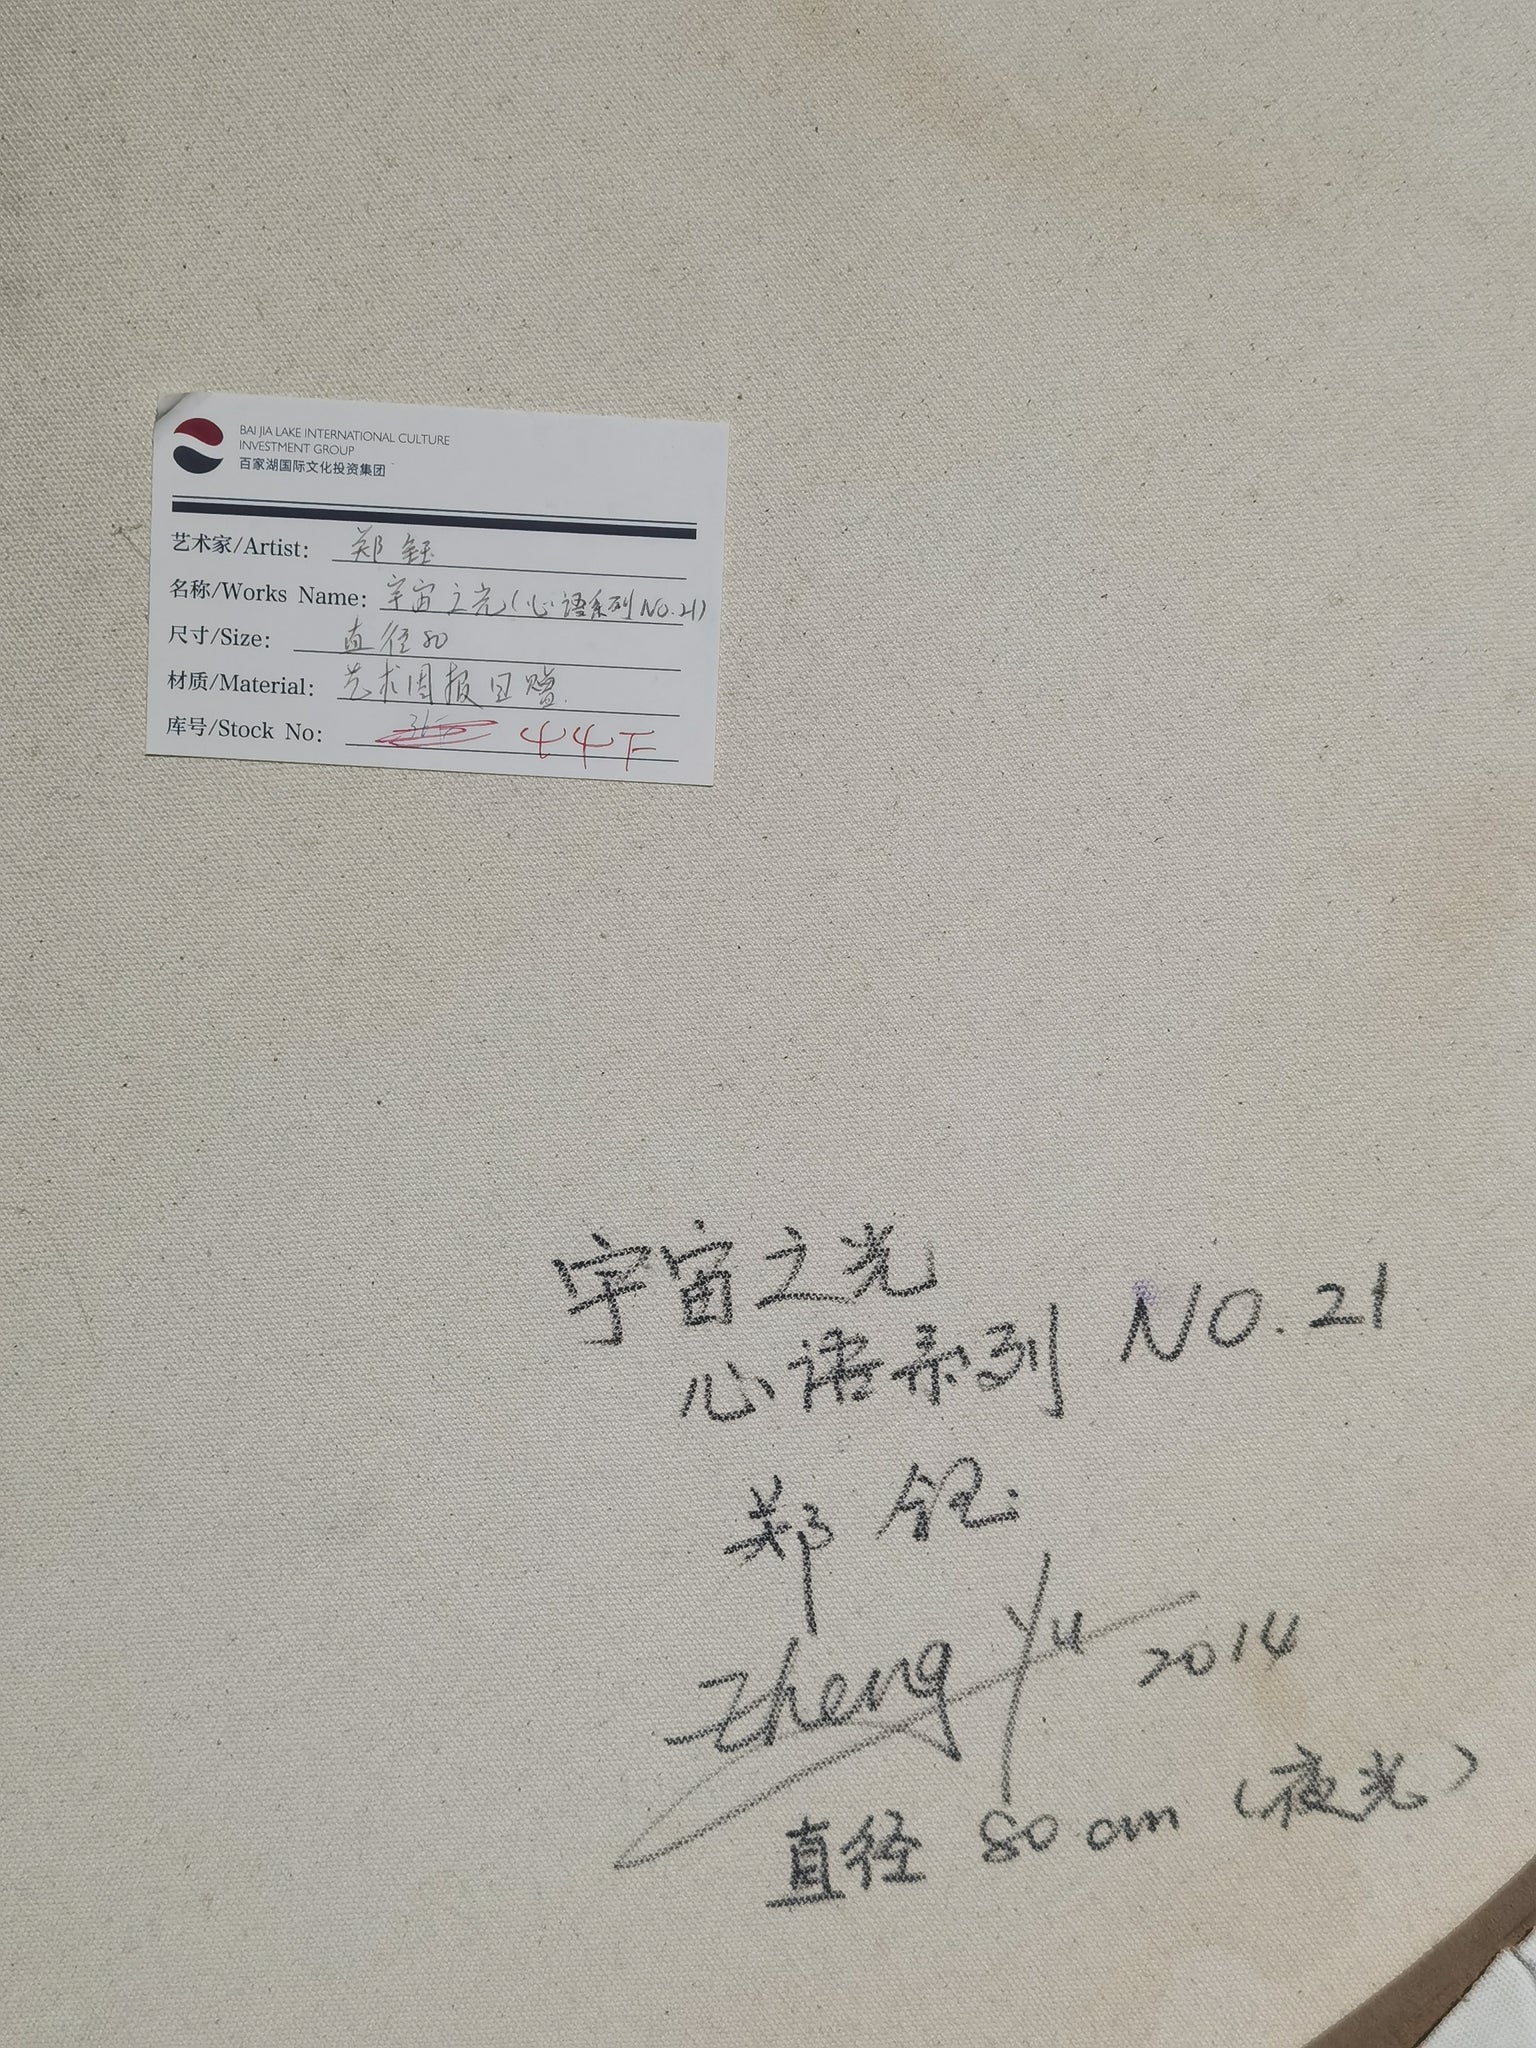 BAI JIA LAKE INTERNATIONAL CULTURE
INVESTMENT GROUP
百家湖国际文化投资集团
艺术家/Artist: 郑钰
名称/Works Name: 宇宙之光(心语系列NO.21)
尺寸/Size: 直径80
材质/Material: 艺术周报回赠.
库号/Stock No: 44下
宇宙之光
心语系列 NO.21
郑钰
Zheng Yu 2014
直径 80cm (夜光)